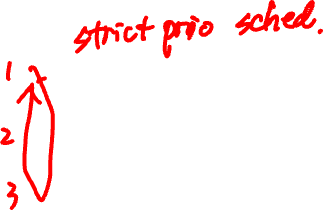 strict prio sched.
1
2
3